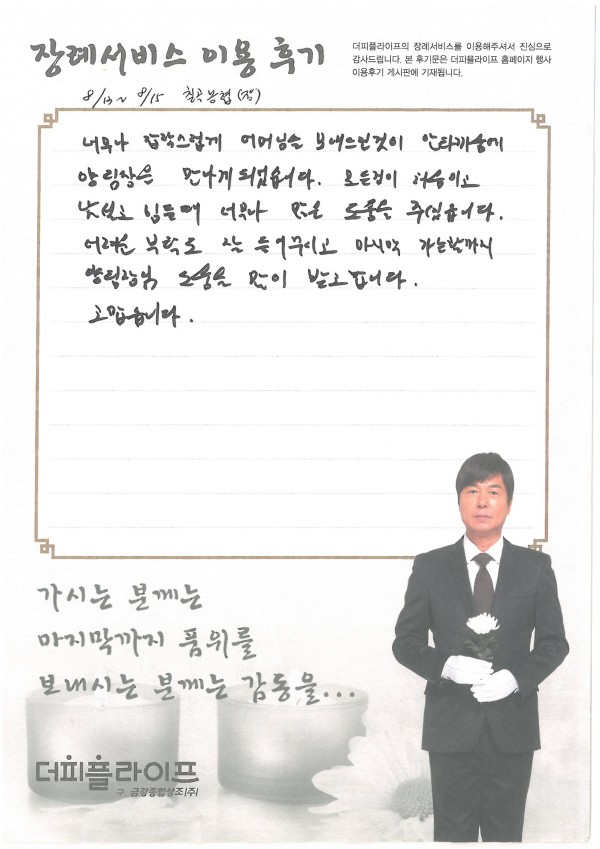 장례서비스 이용 후기
더피플라이프의 장례서비스를 이용해주셔서 진심으로
감사드립니다. 본 후기문은 더피플라이프 홈페이지 행사
이용후기 게시판에 기재됩니다.
8/13~8/15 칠곡농협(장)
너무나 갑작스럽게 어머님을 보내드린것이 안타까움에
만나게 되었습니다. 모든것이 처음이고
낯설고 힘들때 너무나 많은 도움을 주셨습니다.
어려운 부탁도 잘 들어주시고 마지막 가는날까지
도움을 많이 받고 갑니다.
고맙습니다.
가시는 분께는
마지막까지 품위를
보내시는 분께는 감동을...
더피플라이프
구. 금강종합상조(주)